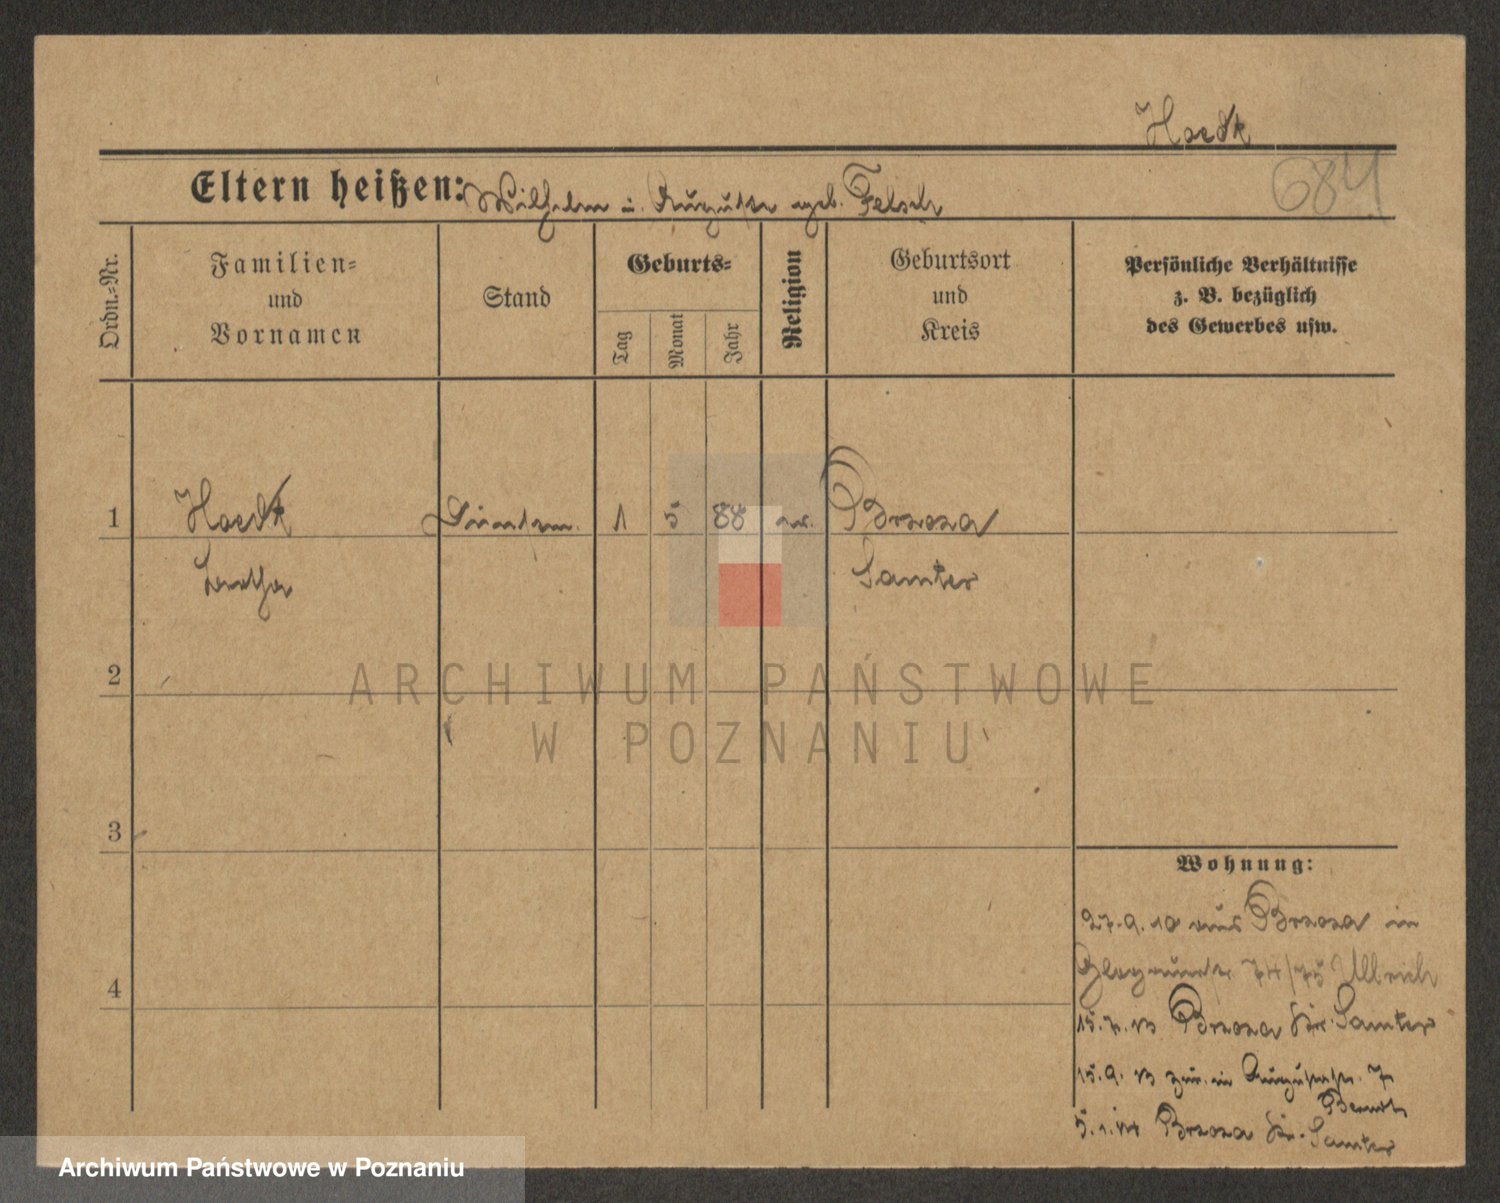 Hoedt
684
Eltern heißen: Wilhelm u. Auguste geb. Felsch
Ordn.-Nr.
Familien-
und
Vornamen
Stand
Geburts-
Tag
Monat
Jahr
Religion
Geburtsort
und
Kreis
Persönliche Verhältnisse
z. B. bezüglich
des Gewerbes usw.
1 Hoedt 1 5 88 ev. Brzoza
Bertha Samter
2
3
4
ARCHIWUM PAŃSTWOWE
W POZNANIU
Wohnung:
27.9.10 aus Brzoza in
Glogauerstr 74/75 Ullrich
15.7.13 Brzoza Kr. Samter
15.9.13 zur. in Augustastr. 7
Berndt
5.1.14 Brzoza Kr. Samter
Archiwum Państwowe w Poznaniu